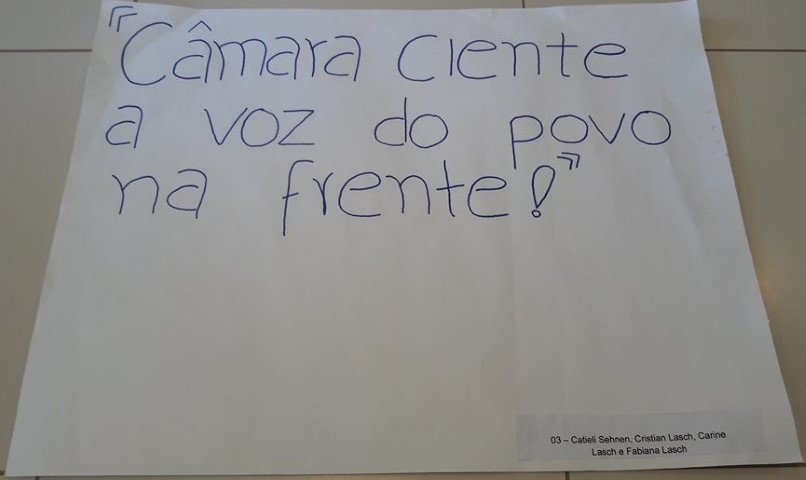 "Câmara ciente
a voz do povo
na frente!"
03 – Catieli Sehnen, Cristian Lasch, Carine
Lasch e Fabiana Lasch